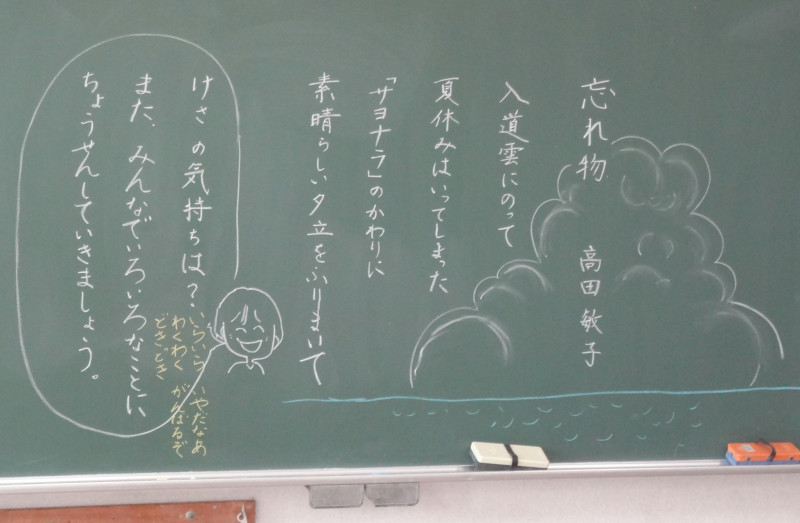 忘れ物
高田敏子
入道雲にのって
夏休みはいってしまった
「サヨナラ」のかわりに
素晴らしい夕立をふりまいて
けさの気持ちは？
いらいら いやだなあ
わくわく がんばるぞ
どきどき
また、みんなでいろいろなことに
ちょうせんしていきましょう。